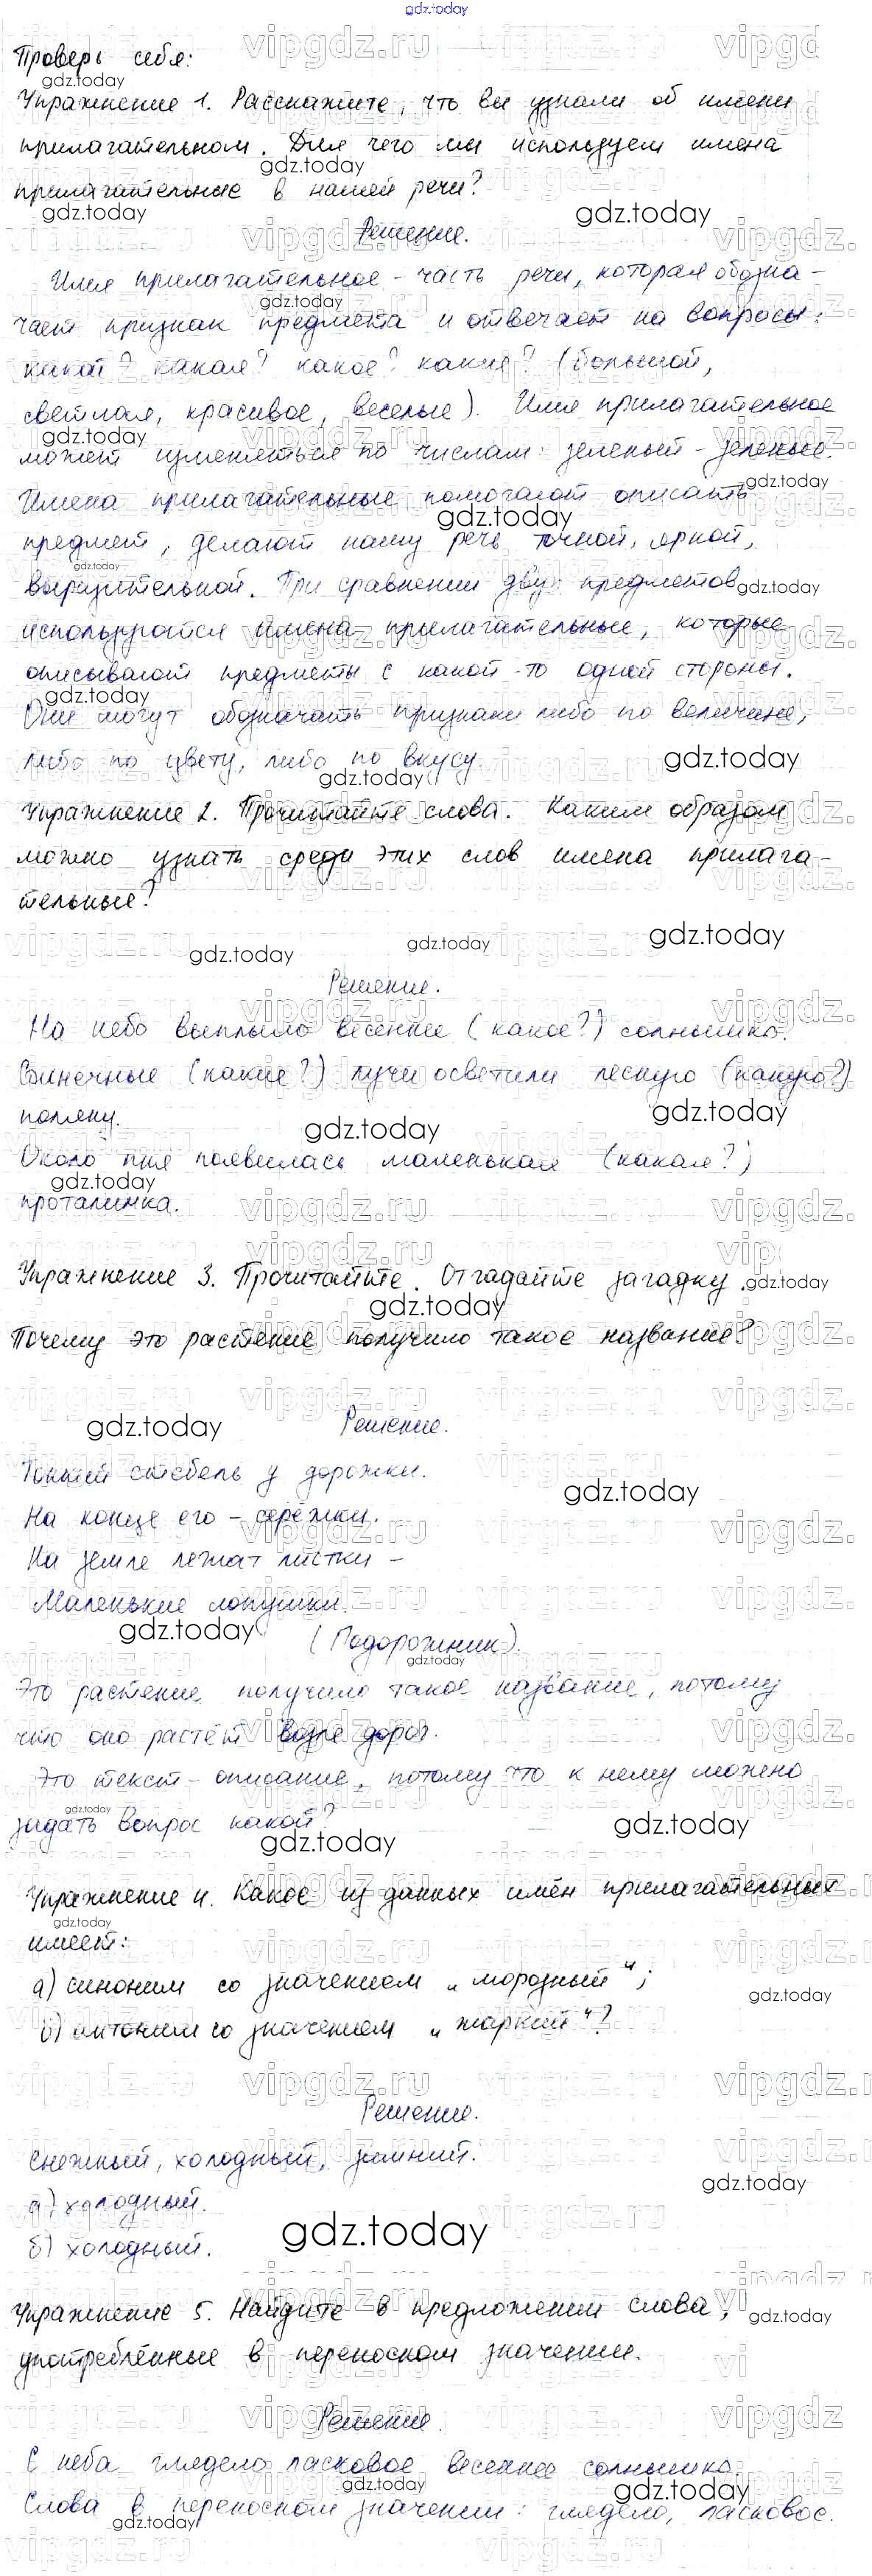 gdz.today
Проверь себя:
Упражнение 1. Расскажите, что вы узнали об имени
прилагательном. Для чего мы используем имена
прилагательные в нашей речи?
Решение.
Имя прилагательное - часть речи, которая обозна-
чает признак предмета и отвечает на вопросы:
какой? какая? какое? какие? (большой,
светлая, красивое, веселые). Имя прилагательное
может изменяться по числам: зеленый - зеленые.
Имена прилагательные помогают описать
предмет, делают нашу речь точной, яркой,
выразительной. При сравнении двух предметов
используются имена прилагательные, которые
описывают предметы с какой-то одной стороны.
Они могут обозначать признаки либо по величине,
либо по цвету, либо по вкусу
Упражнение 2. Прочитайте слова. Каким образом
можно узнать среди этих слов имена прилага-
тельные?
Решение.
На небо выплыло весеннее (какое?) солнышко.
Солнечные (какие?) лучи осветили лесную (какую?)
поляну.
Около пня появилась маленькая (какая?)
проталинка.
Упражнение 3. Прочитайте. Отгадайте загадку.
Почему это растение получило такое название?
Решение.
Тонкий стебель у дорожки.
На конце его - серёжки.
На земле лежат листки -
Маленькие лопушки.
(Подорожник).
Это растение получило такое название, потому
что оно растёт возле дорог.
Это текст - описание, потому что к нему можно
задать вопрос какой?
Упражнение 4. Какое из данных имён прилагательных
имеет:
а) синоним со значением „морозный";
б) антоним со значением „жаркий"?
Решение.
Снежный, холодный, зимний.
а) холодный.
б) холодный.
Упражнение 5. Найдите в предложении слова,
употреблённые в переносном значении.
Решение.
С неба глядело ласковое весеннее солнышко.
Слова в переносном значении: глядело, ласковое.